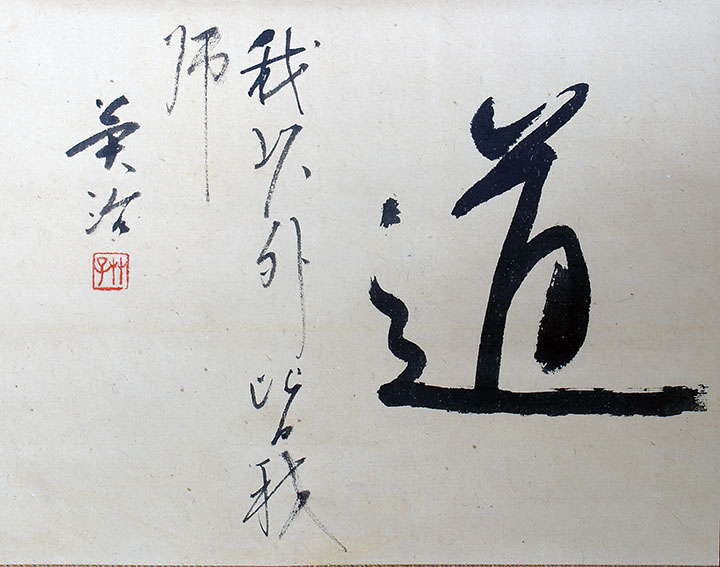 道
我以外皆我
師
英治
艸子